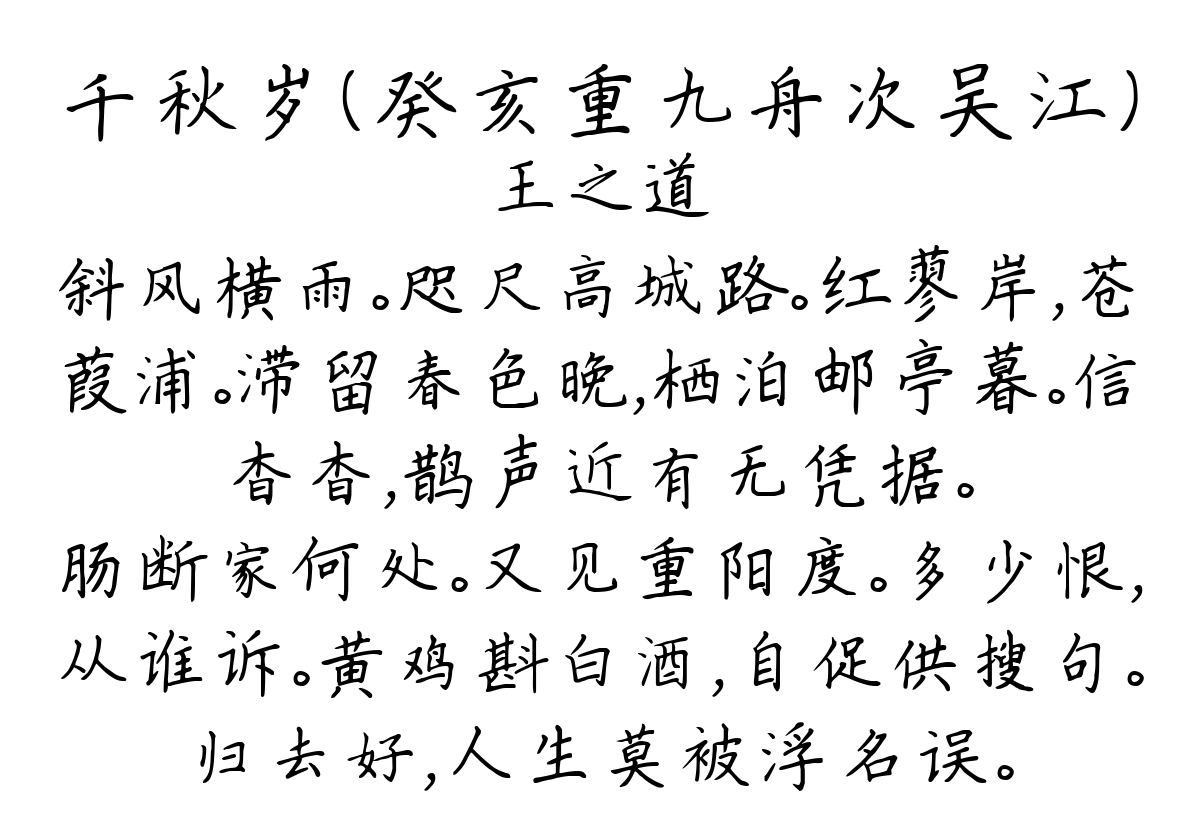 千秋岁(癸亥重九舟次吴江)
王之道
斜风横雨。咫尺高城路。红蓼岸,苍
葭浦。滞留春色晚,栖泊邮亭暮。信
杳杳,鹊声近有无凭据。
肠断家何处。又见重阳度。多少恨,
从谁诉。黄鸡斟白酒,自促供搜句。
归去好,人生莫被浮名误。